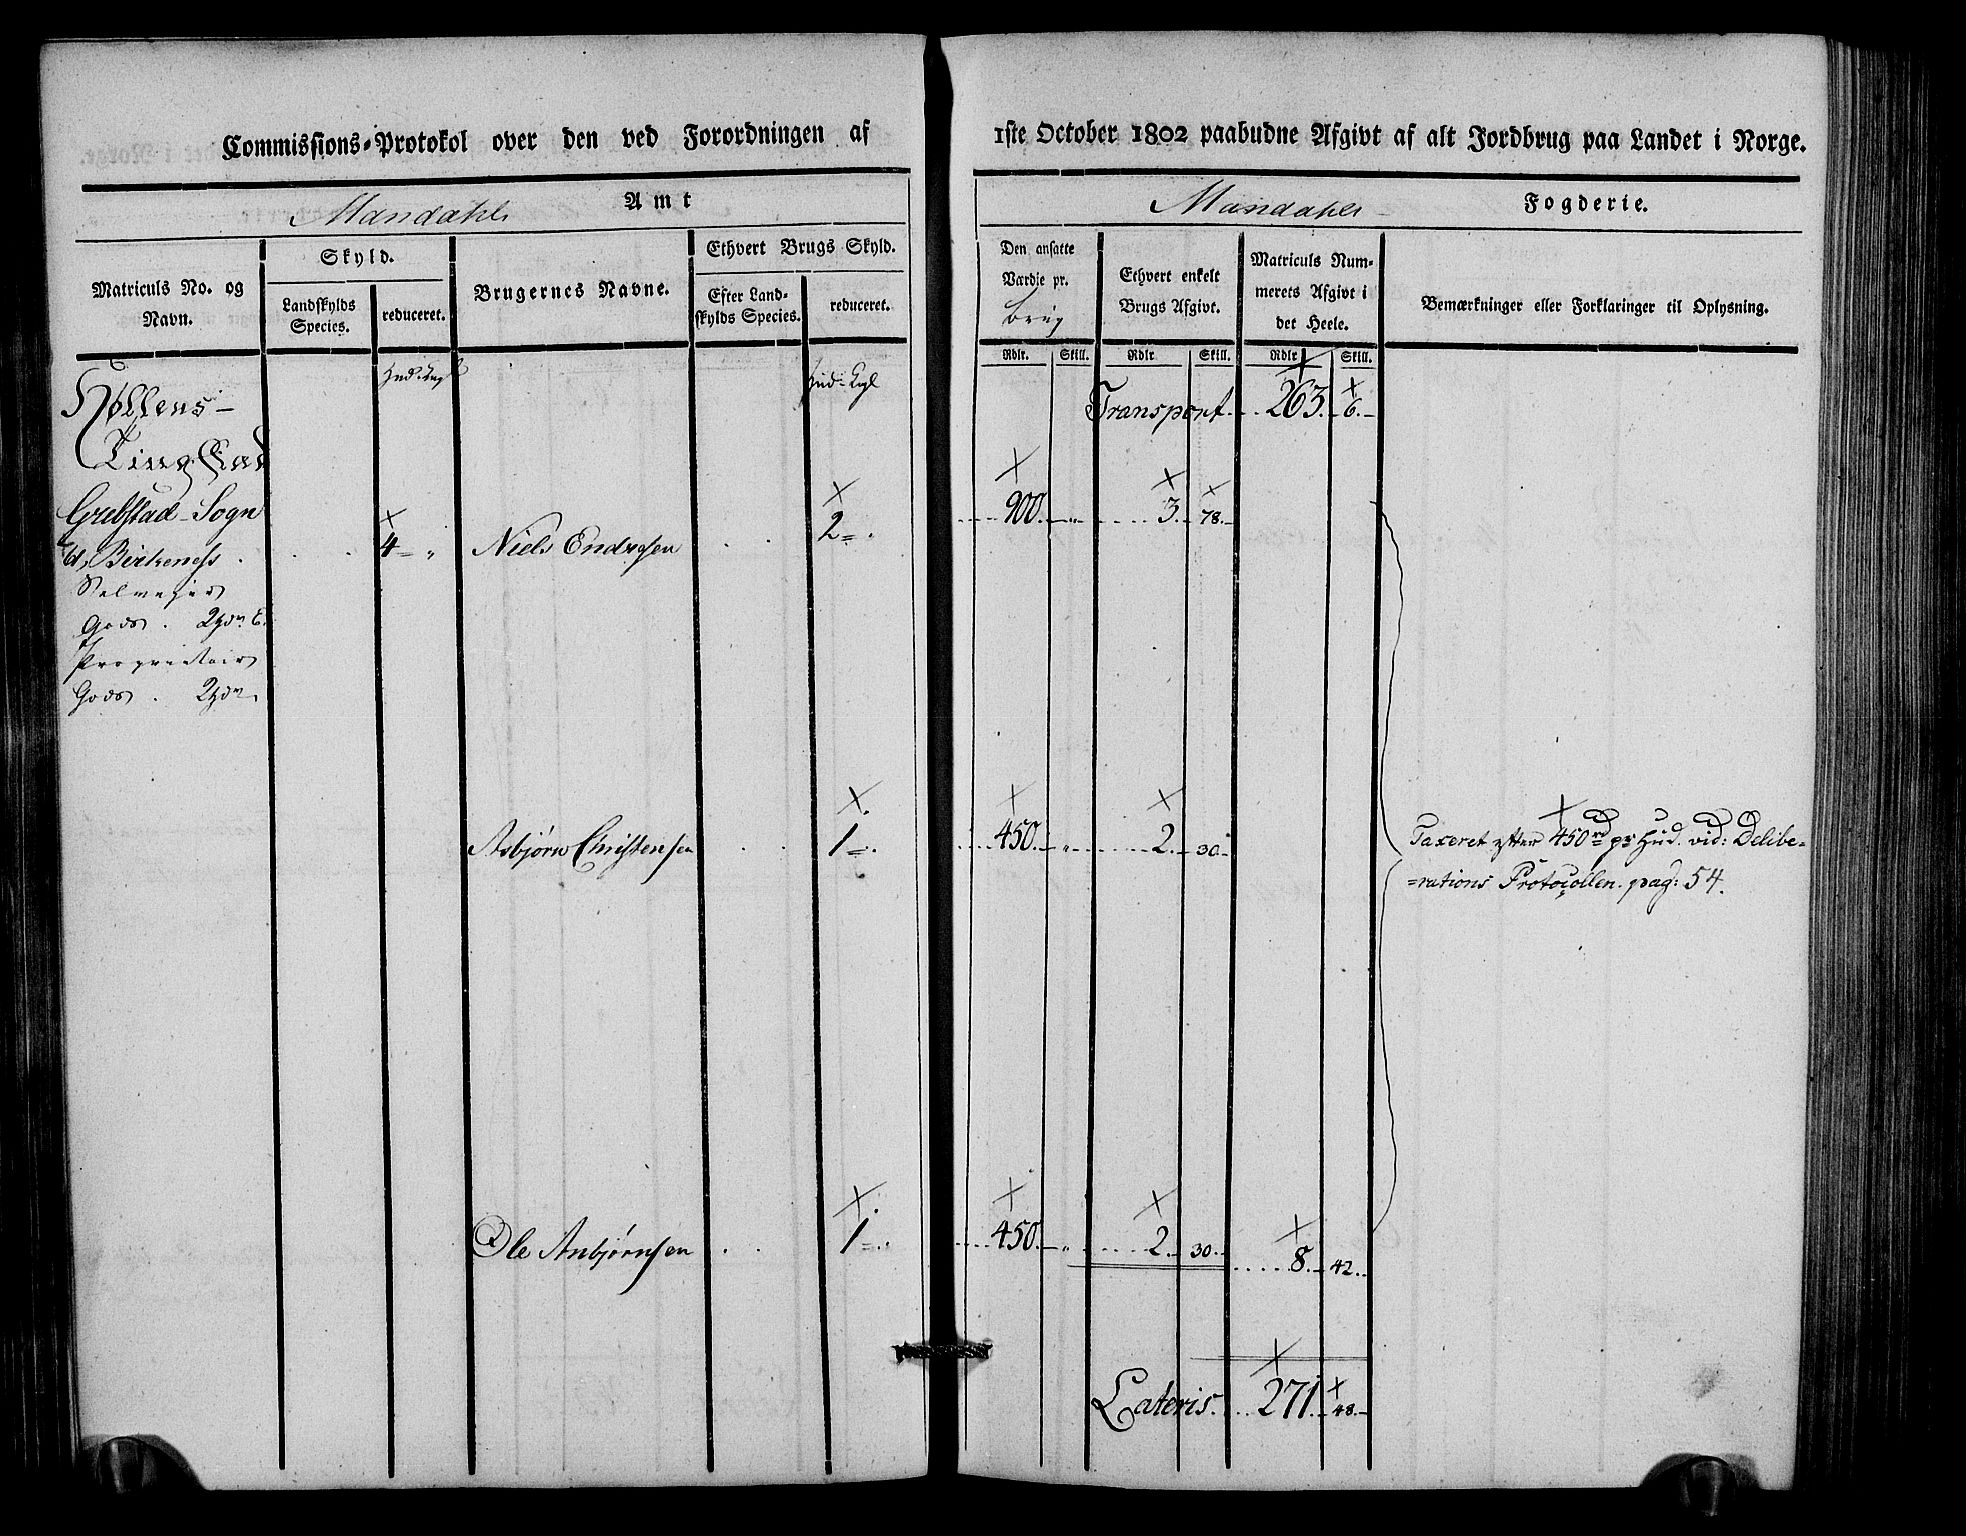 Commissions-Protokol over den ved Forordningen af
1ste October 1802 paabudne Afgivt af alt Jordbrug paa Landet i Norge.
Mandahls Amt
Mandahls Fogderie.
Matriculs No. og Navn.
Skyld.
Landskylds Species.
reduceret.
Brugernes Navne.
Ethvert Brugs Skyld.
Efter Landskylds Species.
reduceret.
Den ansatte Værdie pr.
Brug
Ethvert enkelt Brugs Afgivt.
Matriculs Nummerets Afgivt i det Heele.
Bemærkninger eller Forklaringer til Oplysning.
Rdlr. Skill. Rdlr. Skill. Rdlr. Skill.
Transport 263. 6.
Gods. 2
Niels Endresen 2 900 3. 78.
4
Birkeness
Proprietair
Gods.
Asbjørn Christensen 1 450 2. 30
Taxeret efter 450 rd pr Hud. vid: Delibe=
=rations Protocollen. pag: 54.
Ole Anbjørnsen 1 450 2. 30 8. 42.
Lateris. 271. 48.